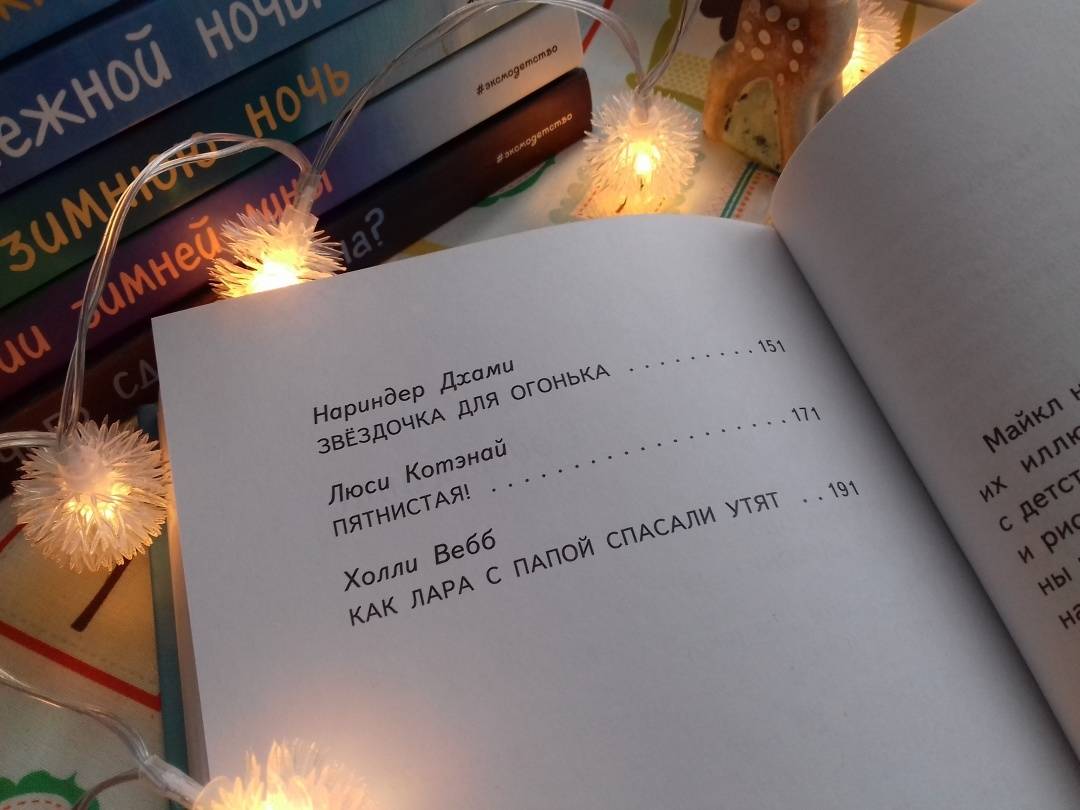 ночь
#эксмодетство
зимнюю
#эксмодетство
зимней луны
Нариндер Дхами
ЗВЁЗДОЧКА ДЛЯ ОГОНЬКА . . . . . . . . . . 151
Люси Котэнай
ПЯТНИСТАЯ! . . . . . . . . . . . . . . . . . . 171
Холли Вебб
КАК ЛАРА С ПАПОЙ СПАСАЛИ УТЯТ . . 191
Майкл
их
с детст
и рис
ны